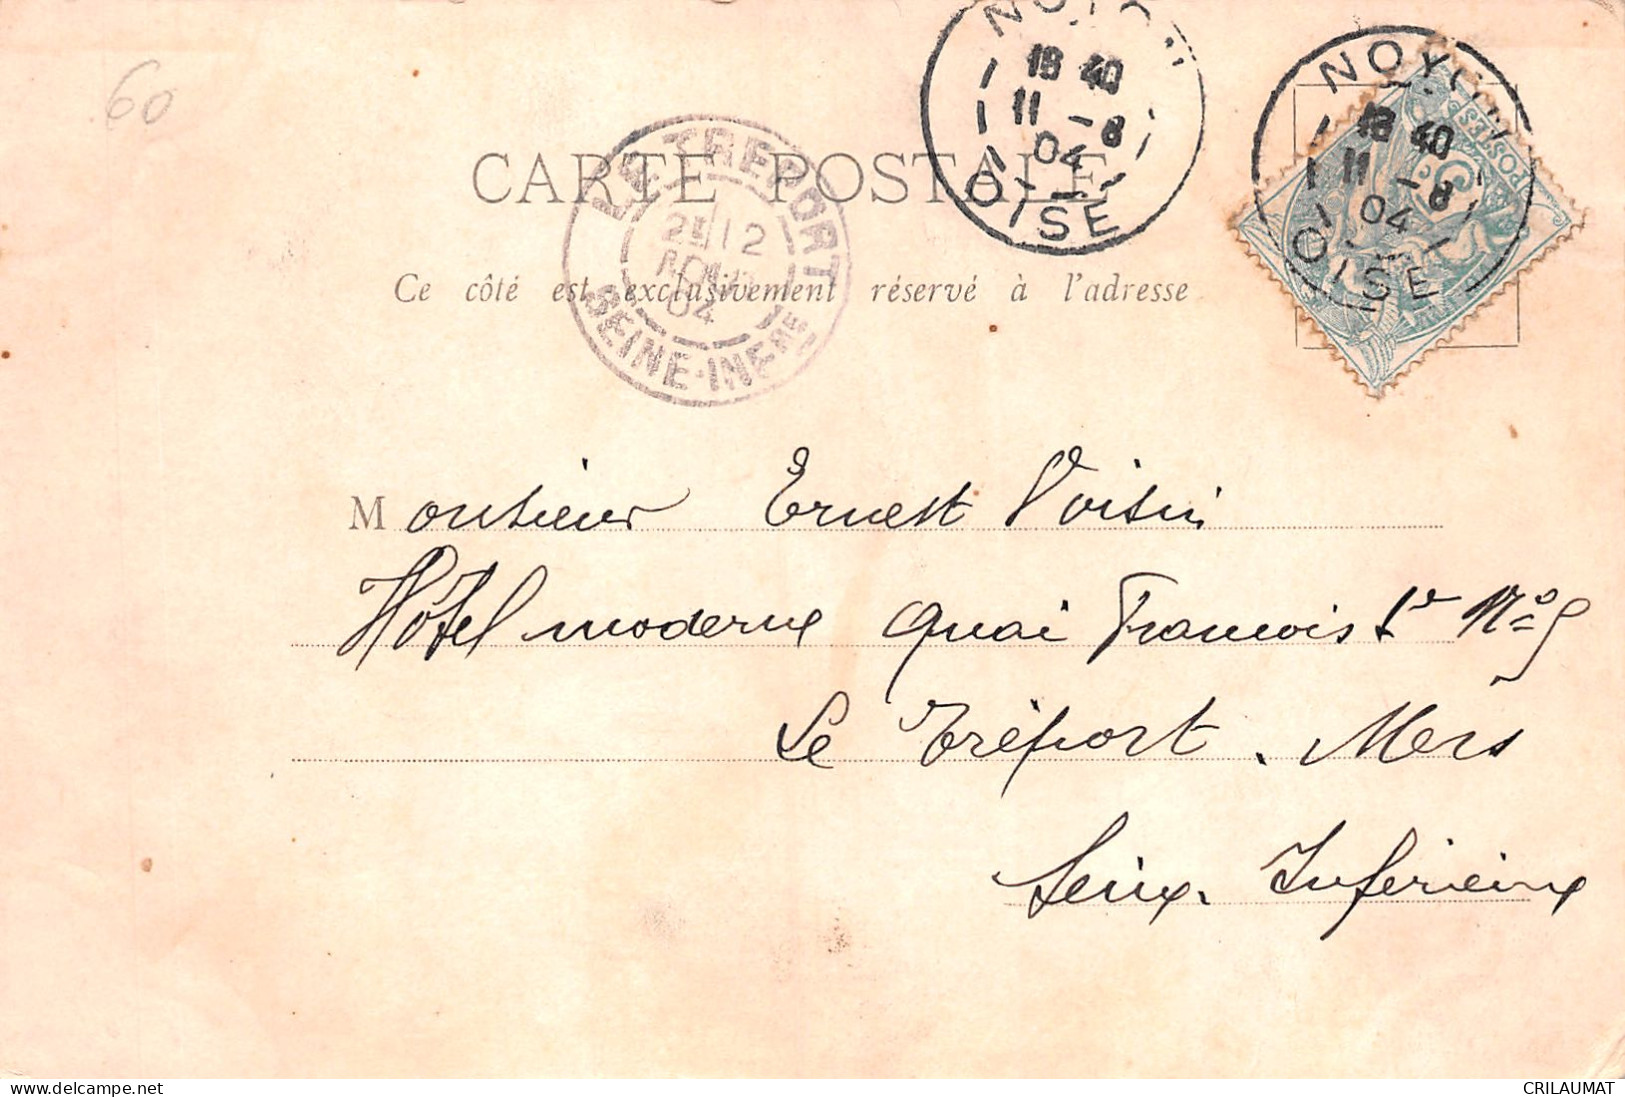 60
NOYON
18 40
11 - 8
04
OISE
NOYON
18 40
11 - 8
04
OISE
POSTES
5
LE TREPORT
2E 12
AOUT
04
SEINE-INFRE
CARTE POSTALE
Ce côté est exclusivement réservé à l'adresse
Monsieur Ernest Voisin
Hôtel moderne Quai Francois 1er No 5
Le Tréport. Mers
Seine. Inférieure
www.delcampe.net
CRILAUMAT